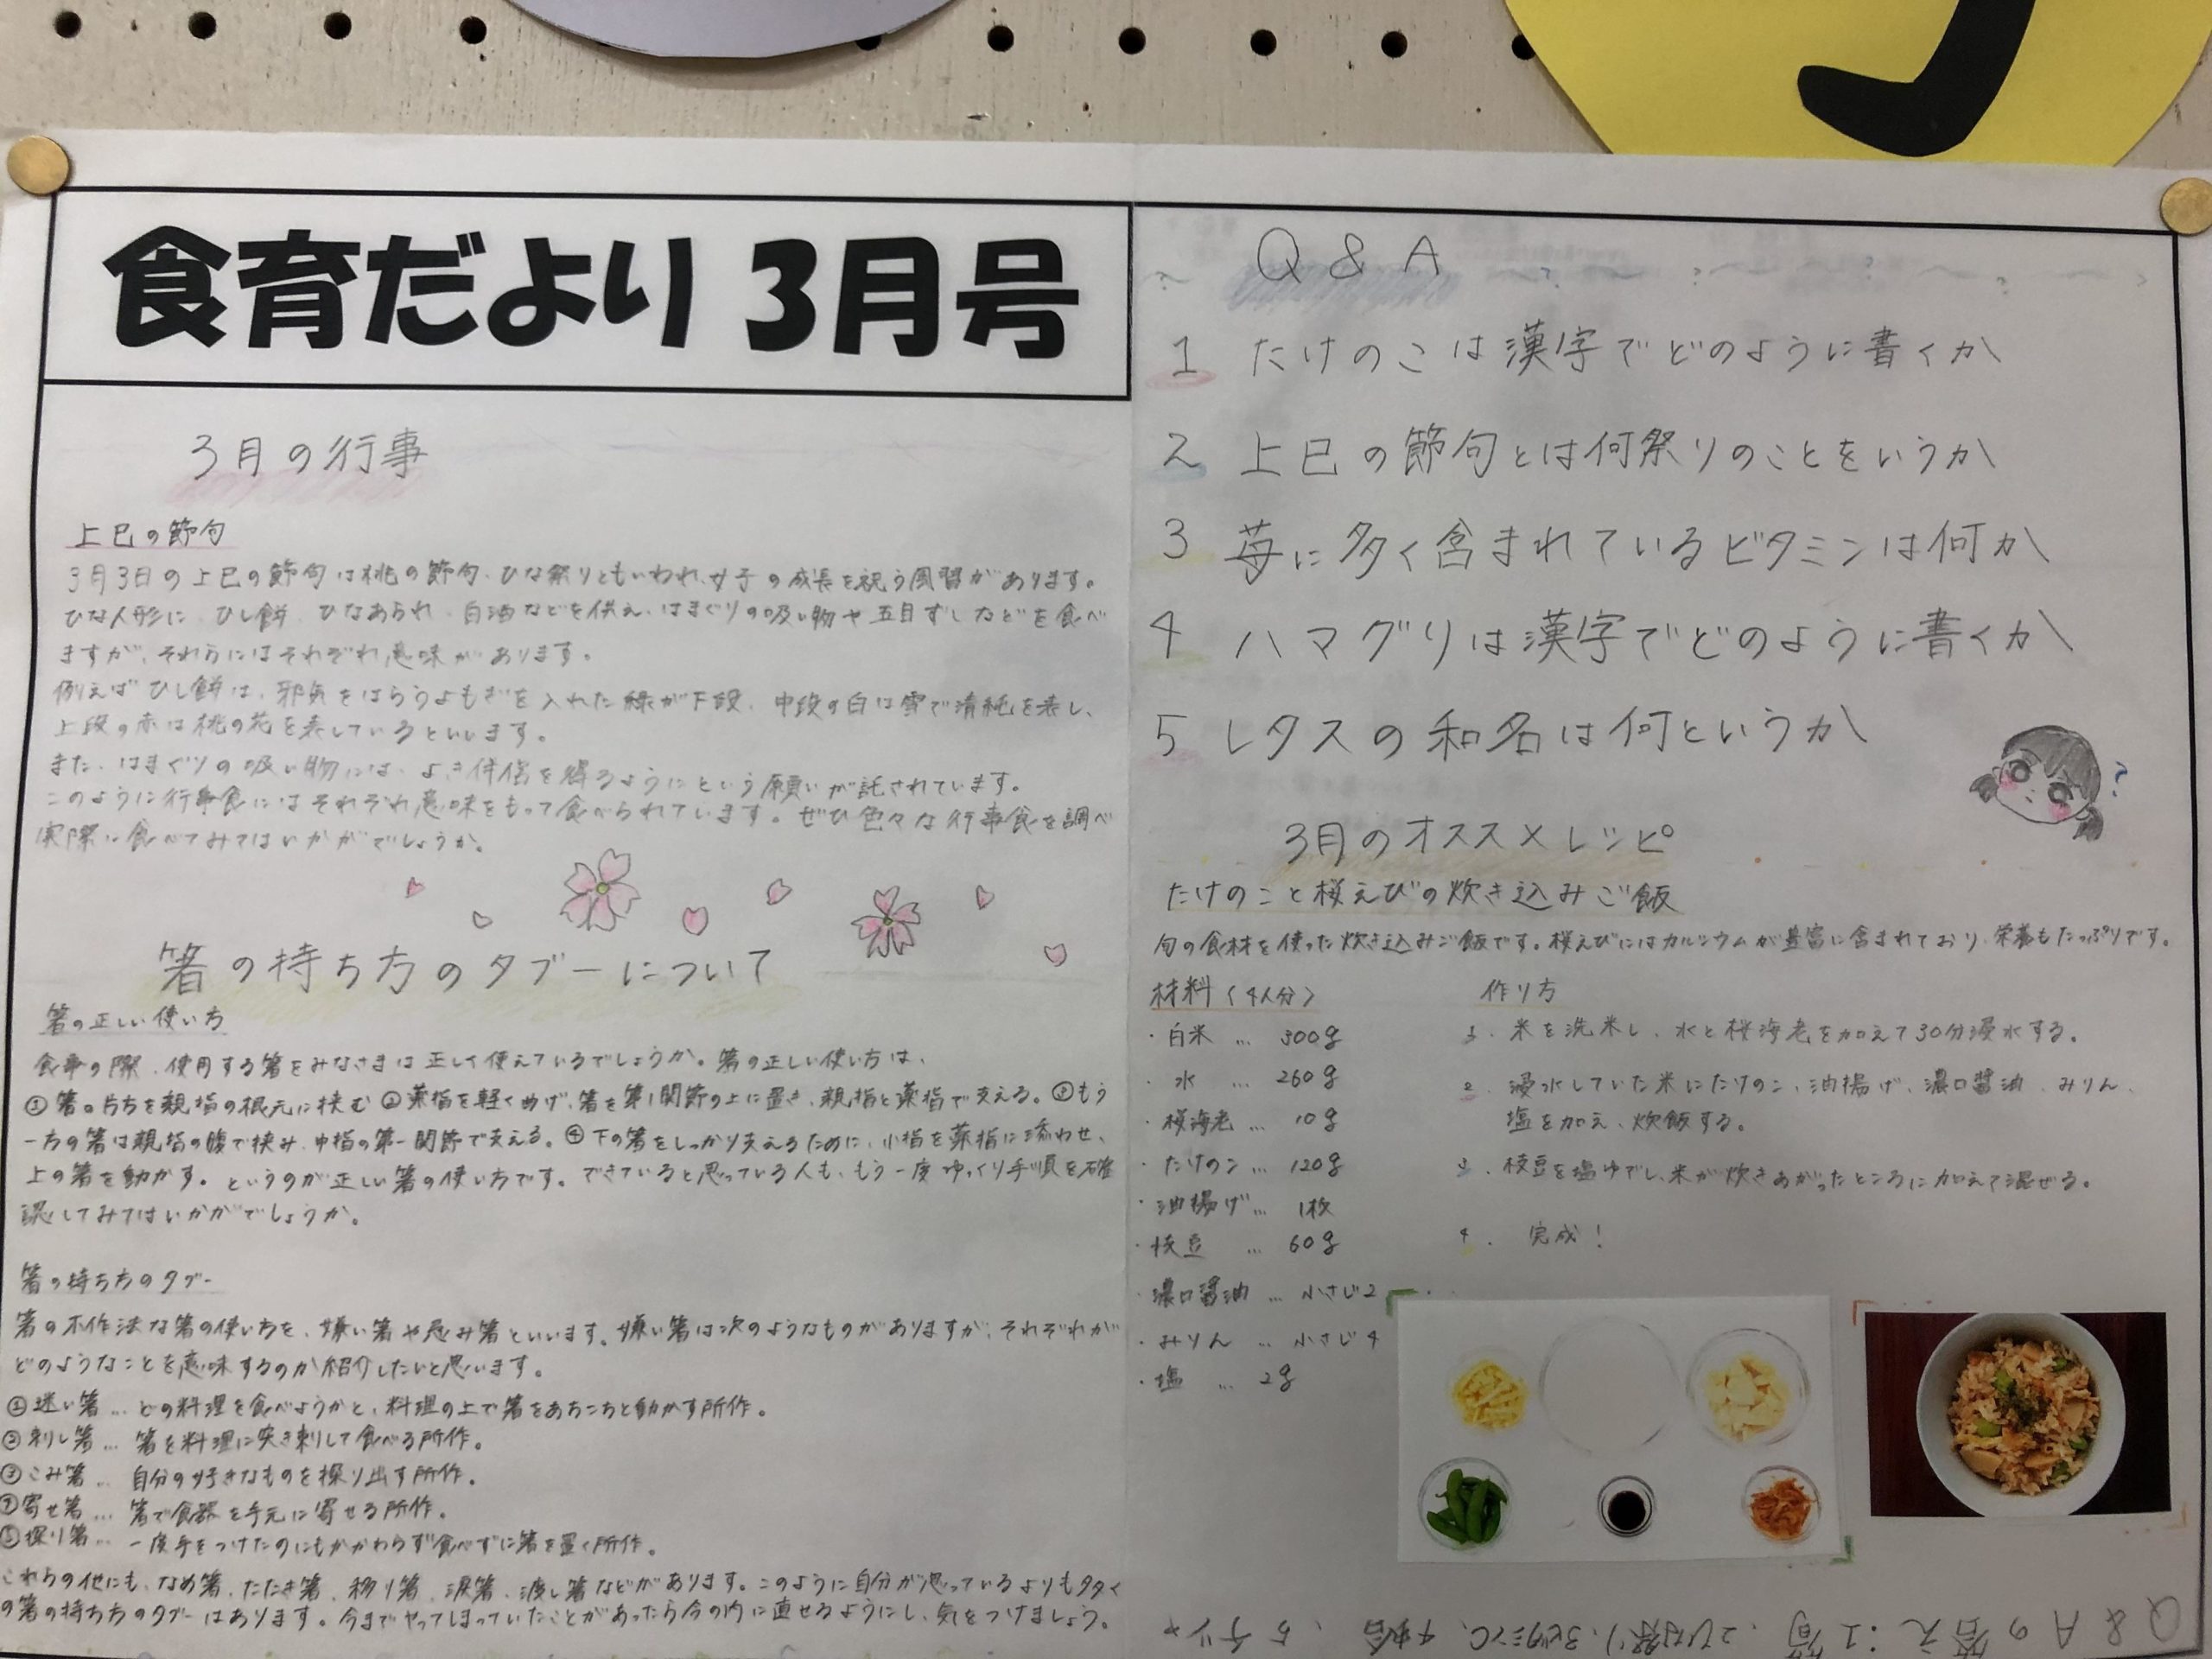 食育だより 3月号
3月の行事
上巳の節句
3月3日の上巳の節句は桃の節句、ひな祭りともいわれ、女子の成長を祝う風習があります。
ひな人形に、ひし餅、ひなあられ、白酒などを供え、はまぐりの吸い物や五目ずしなどを食べ
ますが、それらにはそれぞれ意味があります。
例えばひし餅は、邪気をはらうよもぎを入れた緑が下段、中段の白は雪で清純を表し、
上段の赤は桃の花を表しているといいます。
また、はまぐりの吸い物には、よき伴侶を得るようにという願いが託されています。
このように行事食にはそれぞれ意味をもって食べられています。ぜひ色々な行事食を調べ
実際に食べてみてはいかがでしょうか。
箸の持ち方のタブーについて
箸の正しい使い方
食事の際、使用する箸をみなさまは正しく使えているでしょうか。箸の正しい使い方は、
①箸の片方を親指の根元に挟む ②薬指を軽く曲げ、箸を第1関節の上に置き、親指と薬指で支える。③もう
一方の箸は親指の腹で挟み、中指の第一関節で支える。④下の箸をしっかり支えるために、小指を薬指に添わせ、
上の箸を動かす。というのが正しい箸の使い方です。できていると思っている人も、もう一度ゆっくり手順を確
認してみてはいかがでしょうか。
箸の持ち方のタブー
箸の不作法な箸の使い方を、嫌い箸や忌み箸といいます。嫌い箸は次のようなものがありますが、それぞれが
どのようなことを意味するのか紹介したいと思います。
①迷い箸… どの料理を食べようかと、料理の上で箸をあちこちと動かす所作。
②刺し箸… 箸を料理に突き刺して食べる所作。
③こみ箸… 自分の好きなものを探り出す所作。
④寄せ箸… 箸で食器を手元に寄せる所作。
⑤探り箸… 一度手をつけたのにもかかわらず食べずに箸を置く所作。
これらの他にも、なめ箸、たたき箸、移り箸、涙箸、渡し箸などがあります。このように自分が思っているよりも多く
の箸の持ち方のタブーはあります。今までやってしまっていたことがあったら今の内に直せるようにし、気をつけましょう。
Q & A
1 たけのこは漢字でどのように書くか
2 上巳の節句とは何祭りのことをいうか
3 苺に多く含まれているビタミンは何か
4 ハマグリは漢字でどのように書くか
5 レタスの和名は何というか
3月のオススメレシピ
たけのこと桜えびの炊き込みご飯
旬の食材を使った炊き込みご飯です。桜えびにはカルシウムが豊富に含まれており、栄養もたっぷりです。
材料（4人分）
・白米 … 300g
・水 … 260g
・桜海老 … 10g
・たけのこ … 120g
・油揚げ … 1枚
・枝豆 … 60g
・濃口醤油 … 小さじ2
・みりん … 小さじ4
・塩 … 2g
作り方
1. 米を洗米し、水と桜海老を加えて30分浸水する。
2. 浸水していた米にたけのこ、油揚げ、濃口醤油、みりん、
塩を加え、炊飯する。
3. 枝豆を塩ゆでし、米が炊きあがったところに加えて混ぜる。
4. 完成!
Q&Aの答え:1筍、2ひな祭り、3ビタミンC、4蛤、5チシャ